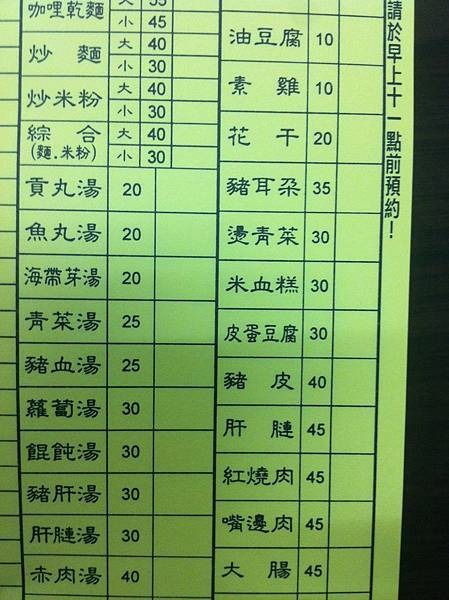 咖哩乾麵 大 55
小 45
炒麵 大 40
小 30
炒米粉 大 40
小 30
綜合 大 40
(麵.米粉) 小 30
貢丸湯 20
魚丸湯 20
海帶芽湯 20
青菜湯 25
豬血湯 25
蘿蔔湯 30
餛飩湯 30
豬肝湯 30
肝膁湯 30
赤肉湯 40
油豆腐 10
素雞 10
花干 20
豬耳朵 35
燙青菜 30
米血糕 30
皮蛋豆腐 30
豬皮 40
肝膁 45
紅燒肉 45
嘴邊肉 45
大腸 45
請於早上十一點前預約！